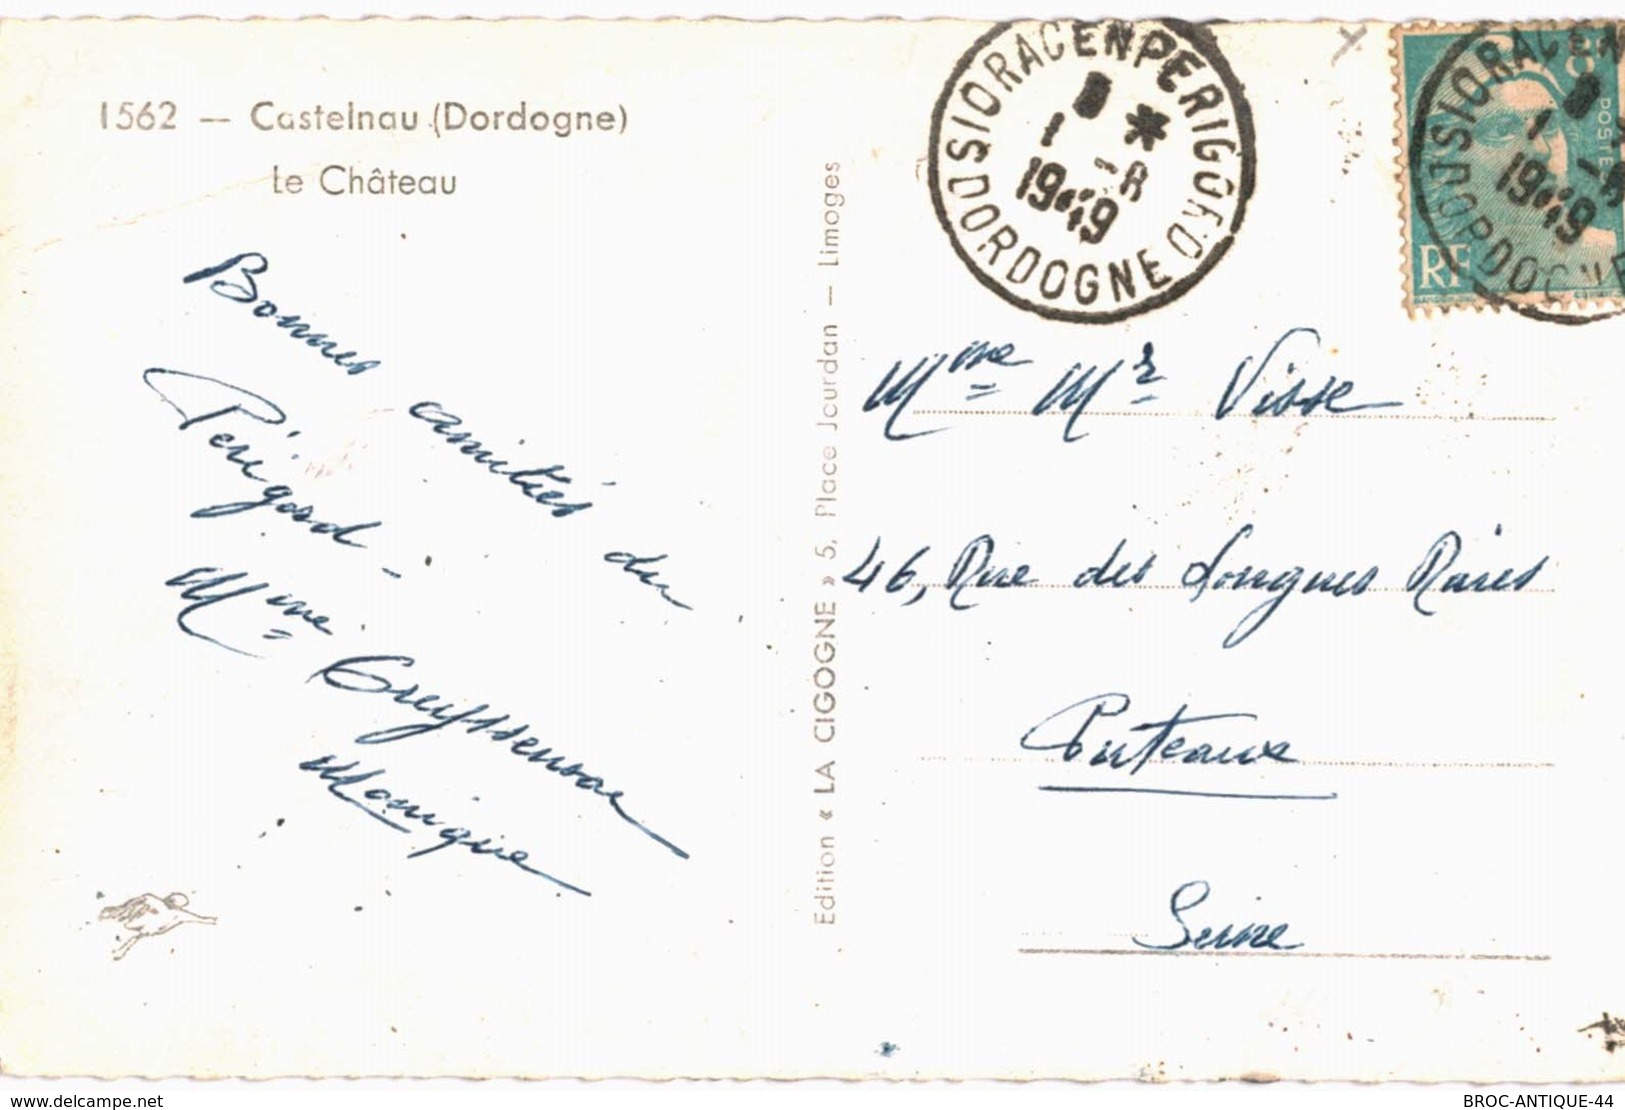 1562 — Castelnau (Dordogne)
Le Château
Bonnes amitiés du
Périgord -
Mme
Monique
Edition « LA CIGOGNE » 5, Place Jourdan — Limoges
SIORAC EN PERIGORD
DORDOGNE
1 -8
1949
POSTE
RF
Mme Mr Visse
46, Rue des Longues Raies
Puteaux
Seine
www.delcampe.net
BROC-ANTIQUE-44